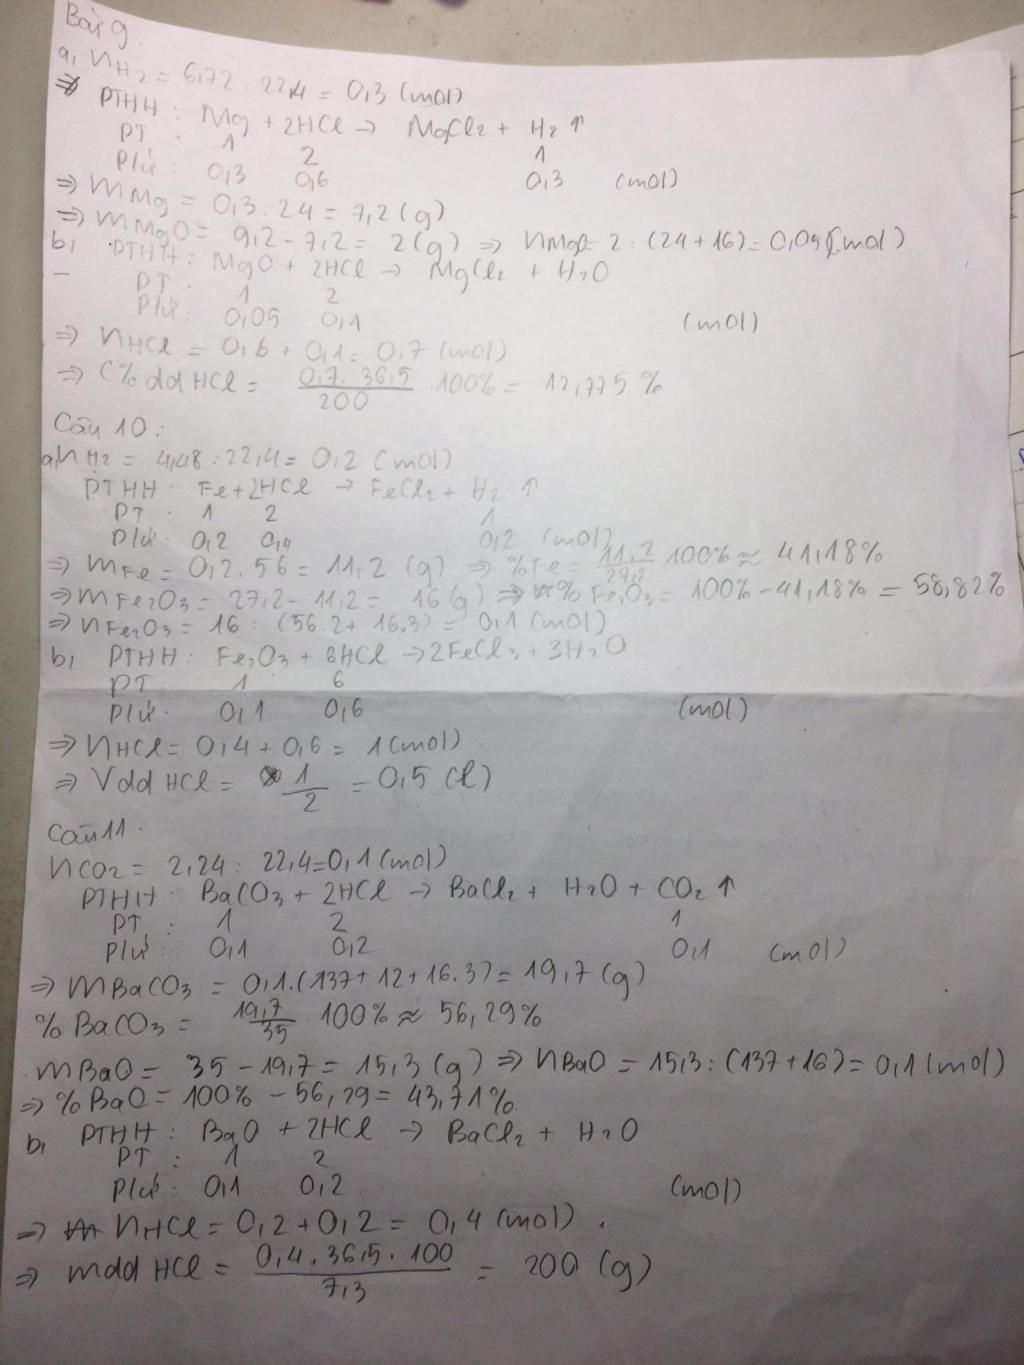 Bài 9
a, nH2 = 6,72 : 22,4 = 0,3 (mol)
=> PTHH : Mg + 2HCl -> MgCl2 + H2 ↑
PT : 1 2 1
P/ứ : 0,3 0,6 0,3 (mol)
=> mMg = 0,3 . 24 = 7,2 (g)
=> mMgO = 9,2 - 7,2 = 2 (g) => nMgO = 2 : (24 + 16) = 0,05 (mol)
b, PTHH : MgO + 2HCl -> MgCl2 + H2O
- PT : 1 2
P/ứ : 0,05 0,1 (mol)
=> nHCl = 0,6 + 0,1 = 0,7 (mol)
=> C% dd HCl = 0,7 . 36,5 / 200 . 100% = 12,775 %
Câu 10 :
a, nH2 = 4,48 : 22,4 = 0,2 (mol)
PTHH : Fe + 2HCl -> FeCl2 + H2 ↑
PT : 1 2 1
P/ứ : 0,2 0,4 0,2 (mol)
=> mFe = 0,2 . 56 = 11,2 (g) => %Fe = 11,2 / 27,2 . 100% ≈ 41,18%
=> mFe2O3 = 27,2 - 11,2 = 16 (g) => % Fe2O3 = 100% - 41,18% = 58,82%
=> nFe2O3 = 16 : (56.2 + 16.3) = 0,1 (mol)
b, PTHH : Fe2O3 + 6HCl -> 2FeCl3 + 3H2O
PT : 1 6
P/ứ : 0,1 0,6 (mol)
=> nHCl = 0,4 + 0,6 = 1 (mol)
=> Vdd HCl = 1 / 2 = 0,5 (l)
Câu 11 :
nCO2 = 2,24 : 22,4 = 0,1 (mol)
PTHH : BaCO3 + 2HCl -> BaCl2 + H2O + CO2 ↑
PT : 1 2 1
P/ứ : 0,1 0,2 0,1 (mol)
=> mBaCO3 = 0,1.(137 + 12 + 16.3) = 19,7 (g)
% BaCO3 = 19,7 / 35 . 100% ≈ 56,29%
mBaO = 35 - 19,7 = 15,3 (g) => nBaO = 15,3 : (137 + 16) = 0,1 (mol)
=> % BaO = 100% - 56,29 = 43,71%
b, PTHH : BaO + 2HCl -> BaCl2 + H2O
PT : 1 2
P/ứ : 0,1 0,2 (mol)
=> nHCl = 0,2 + 0,2 = 0,4 (mol) .
=> mdd HCl = 0,4 . 36,5 . 100 / 7,3 = 200 (g)